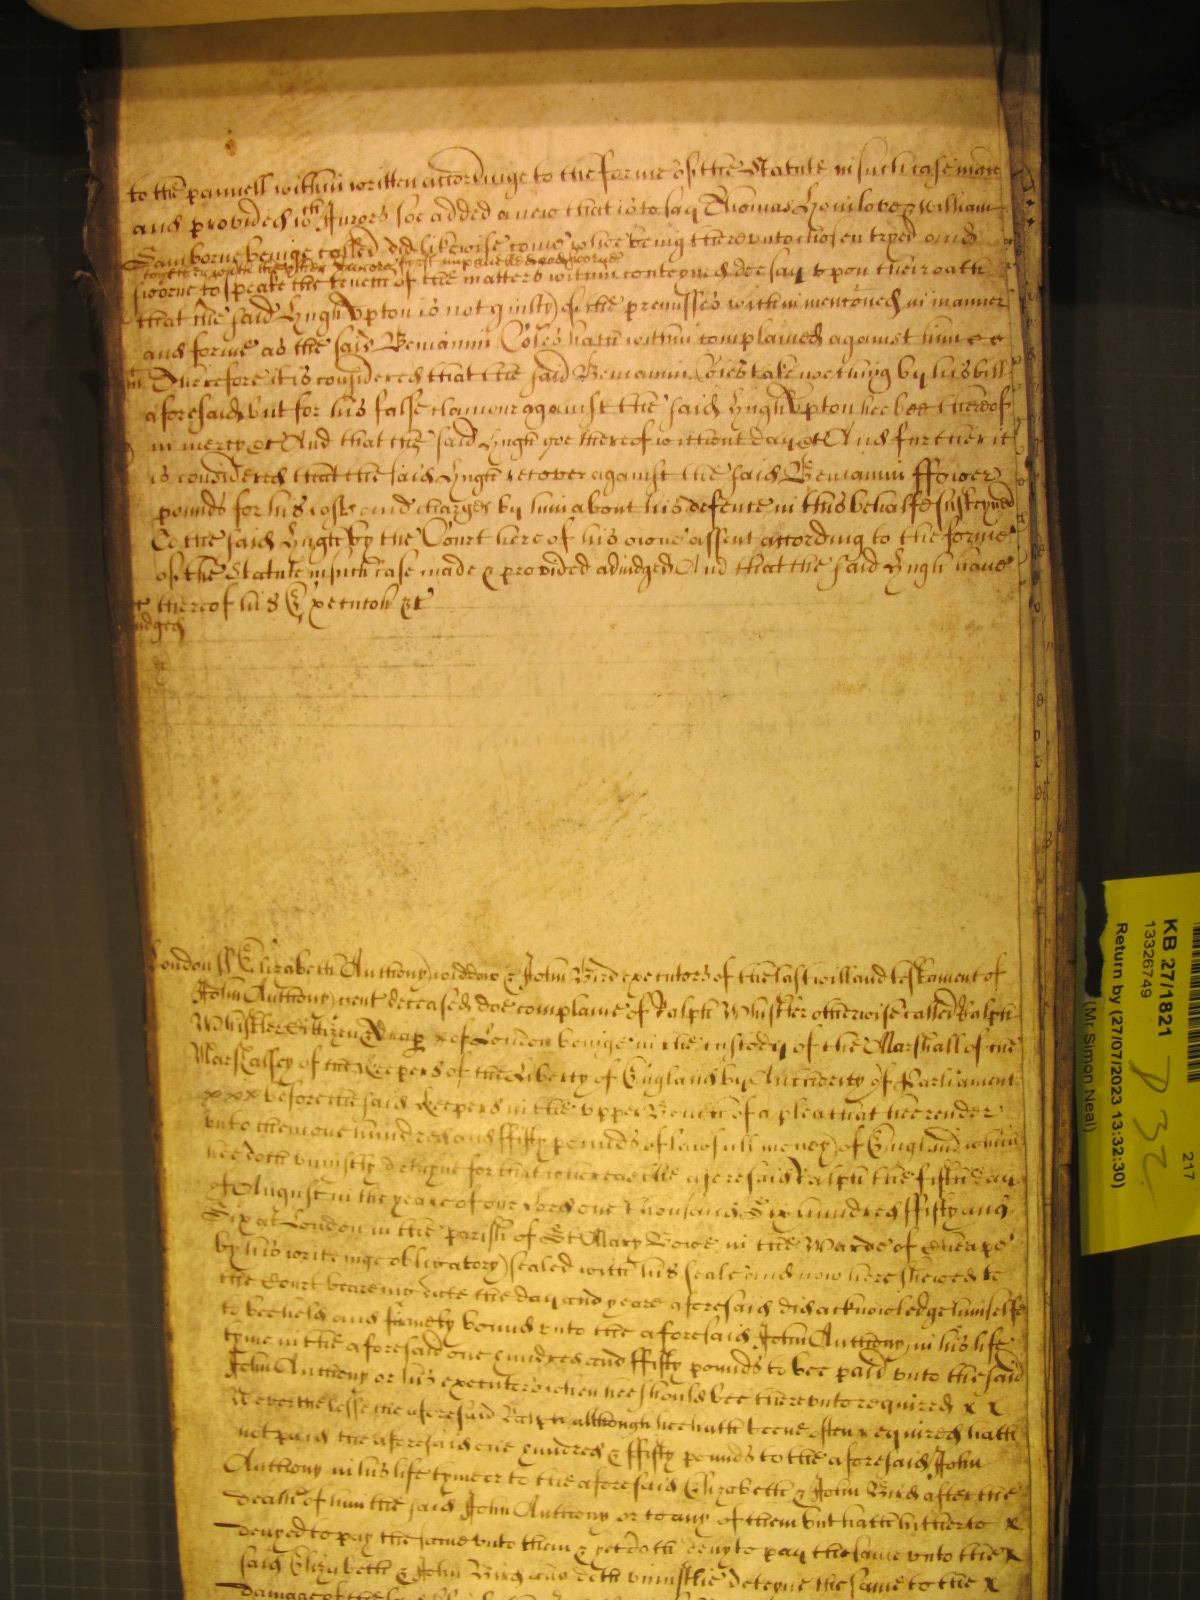 to the pannell within written accordinge to the forme of the Statute in such case made
and provided 10th Jurors soe added anew that is to say Thomas Homlove & William
Samborne beinge called did likewise come whoe being thereunto chosen tryed and
together with the other Jurors first impanelled and sworne
sworne to speake the trueth of the matters within conteyned doe say upon their oath
that the said Hugh Upton is not guilty of the premisses within mentioned in manner
and forme as the said Beniamin Coles hath within complained against him
Therefore it is considered that the said Beniamin Coles take nothing by his bill
aforesaid but for his false clamour against the said Hugh Upton hee bee thereof
in mercy &c And that the said Hugh goe thereof without day &c And further it
is considered that the said Hugh recover against the said Beniamin ffower
pounds for his costs and charges by him about his defence in this behalfe susteyned
to the said Hugh by the Court here of his owne assent according to the forme
of the Statute in such case made & provided adiudged And that the said Hugh have
thereof his Execution &c
London ss Elizabeth Anthony widdow & John Bird executors of the last will and testament of
John Anthony gent deceased doe complaine of Ralph Whistler otherwise called Ralph
Whistler Citizen & drap x of London beinge in the custody of the Marshall of the
Marshalsey of the Keepers of the Liberty of England by Authority of Parliament
xxx before the said Keepers in the upper Bench of a plea that hee render
unto them one hundred and ffifty pounds of lawfull money of England which
hee doth uniustly deteyne for that whereas the aforesaid Ralph the fifth day
of August in the yeare of our Lord one thousand Six hundred ffifty and
Six at London in the parish of St Mary Bowe in the Warde of Cheape
by his writeinge obligatory sealed with his seale and now here shewed to
the Court beareing date the day and yeare aforesaid did acknowledge himselfe
to bee held and firmely bound unto the aforesaid John Anthony in his life
tyme in the aforesaid one hundred and ffifty pounds to bee paid unto the said
John Anthony or his executors when hee should bee thereunto required x x
Neverthelesse the aforesaid Ralph although hee hath beene often required hath
not paid the aforesaid one hundred & ffifty pounds to the aforesaid John
Anthony in his life tyme or to the aforesaid Elizabeth & John Bird after the
death of him the said John Anthony or to any of them but hath hitherto x
denyed to pay the same unto them & yet doth deny to pay the same unto the x
said Elizabeth & John Bird and doth uniustlie deteyne the same to the x
damage of the
KB 27/1821
13326749
Return by (27/07/2023 13:32:30)
(Mr Simon Neal)
217
P 32